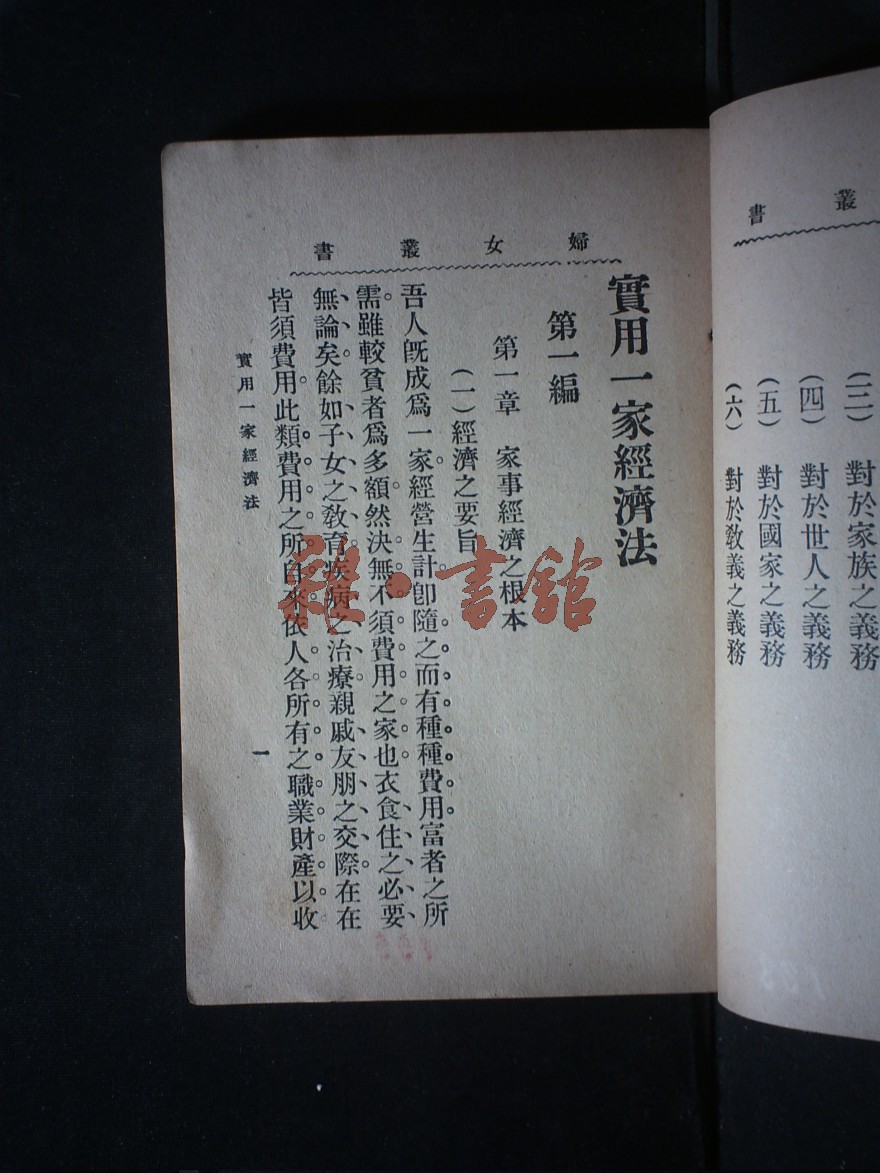 叢書
(三) 對於家族之義務
(四) 對於世人之義務
(五) 對於國家之義務
(六) 對於敎義之義務
婦女叢書
實用一家經濟法
第一編
第一章 家事經濟之根本
(一)經濟之要旨
吾人旣成爲一家經營生計卽隨之而有種種費用富者之所
需雖較貧者爲多額然決無不須費用之家也衣食住之必要
無論矣餘如子女之敎育疾病之治療親戚友朋之交際在在
皆須費用此類費用之所自來依人各所有之職業財產以收
實用一家經濟法
一
雜·書館